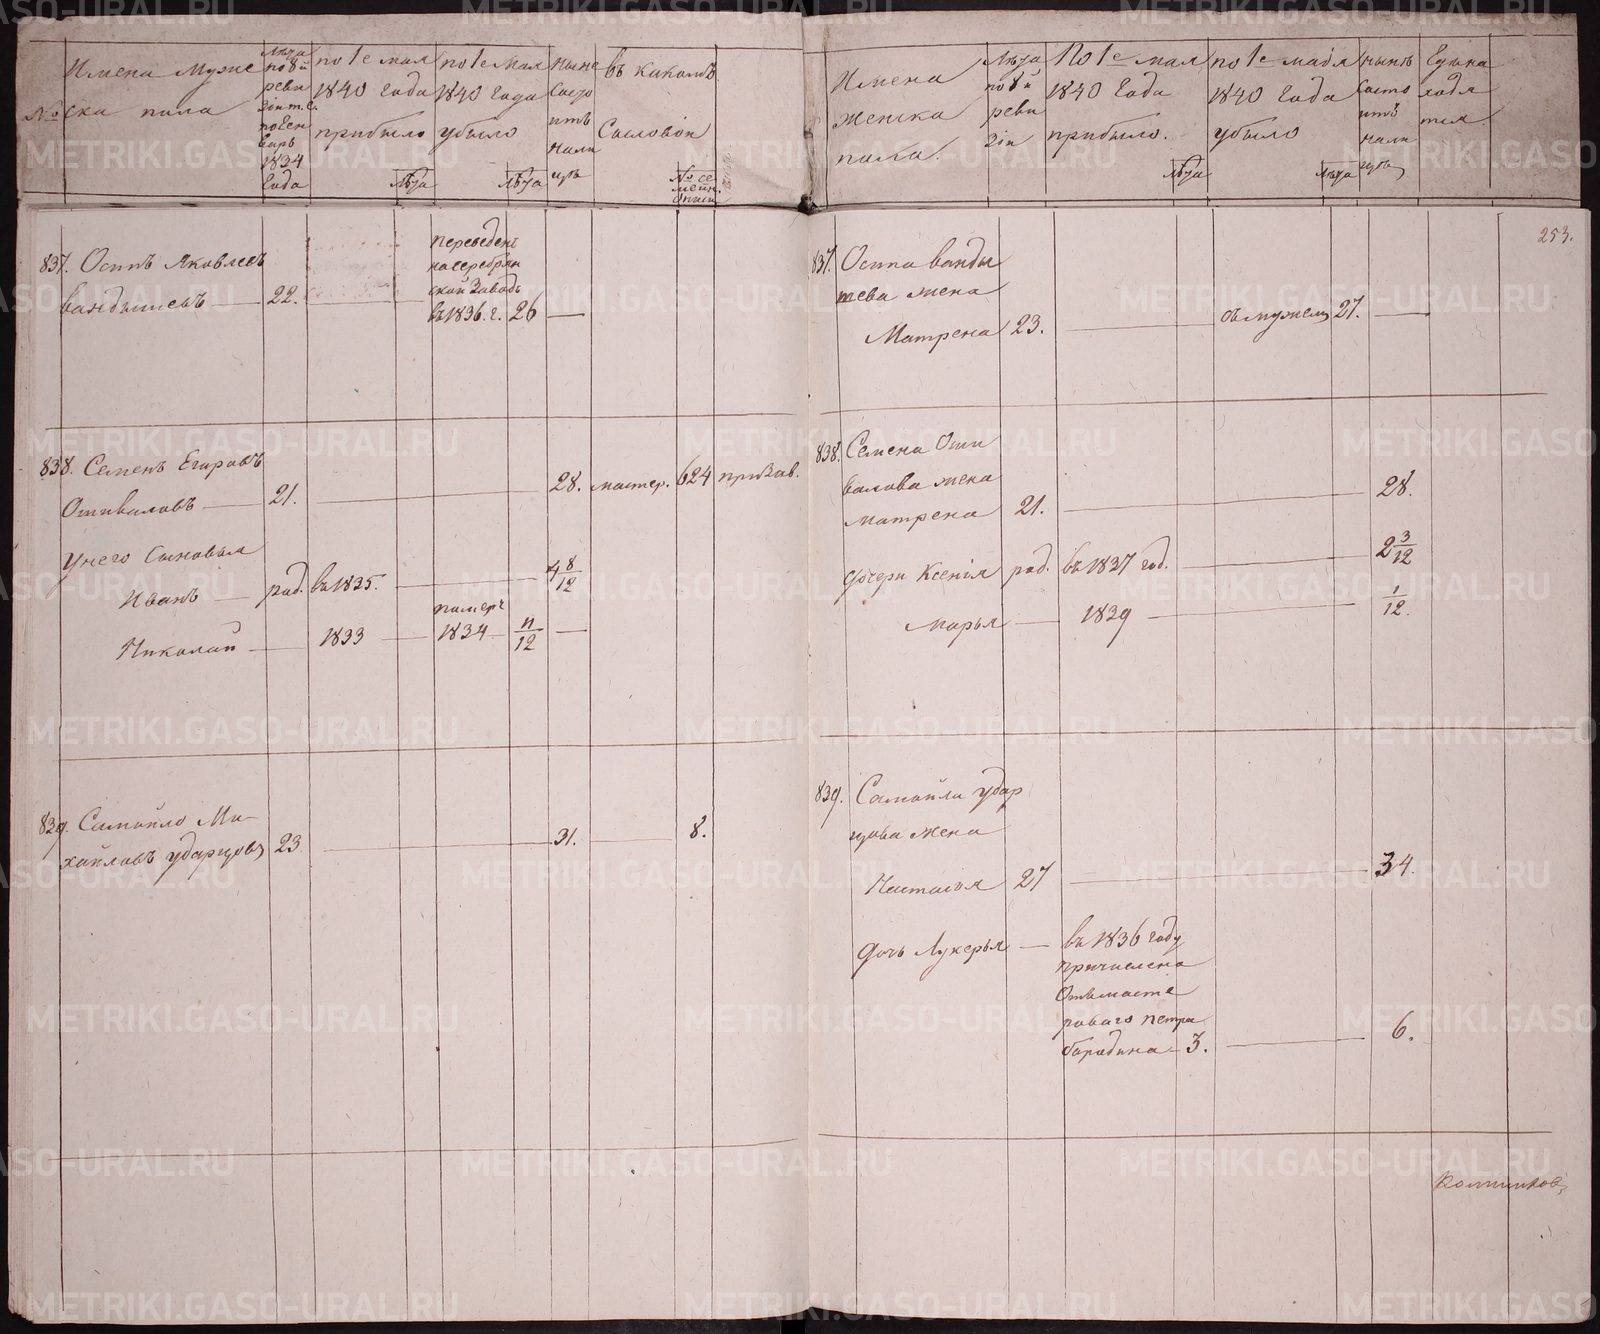 №
Имена Муже
ска пола
Лѣта
по 8й
реви
зіи
1834
Года
по 1е мая
1840 Года
прибыло
лѣта
по 1е мая
1840 Года
убыло
лѣта
ныне
Состо
итъ
нали
цѣ
въ какомъ
Сословіи
№ се
мейн.
описи
837. Осипъ Яковлевъ
вандышевъ 22.
переведенъ
на серебрян
ской Заводъ
въ 1836. г. 26
838. Семенъ Егоровъ
Отиваловъ 21. 28. мастер. 624
у него Сыновья
Иванъ род. въ 1835. 4 8/12
Николай 1833 померъ 1834 11/12
839. Самойло Ми-
хайловъ ударцовъ 23 31. 8.
Имена
Женска
пола.
Лѣта
по 8й
реви
зіи
По 1е мая
1840 Года
прибыло.
лѣта
по 1е майя
1840 Года
убыло
лѣта
нынѣ
Состо
итъ
нали
цѣ
253.
837. Осипа ванды
шева жена
Матрена 23. съ мужемъ 27.
838. Семена Оти
валова жена
матрена 21. 28.
дочери Ксенія род. въ 1837 год. 2 3/12
марья 1839 1/12.
839. Самойла удар
цова жена
Настасья 27 34.
дочь Лукерья въ 1836 году
причислена
Отъ масте
роваго петра
бородина 3. 6.
METRIKI.GASO-URAL.RU